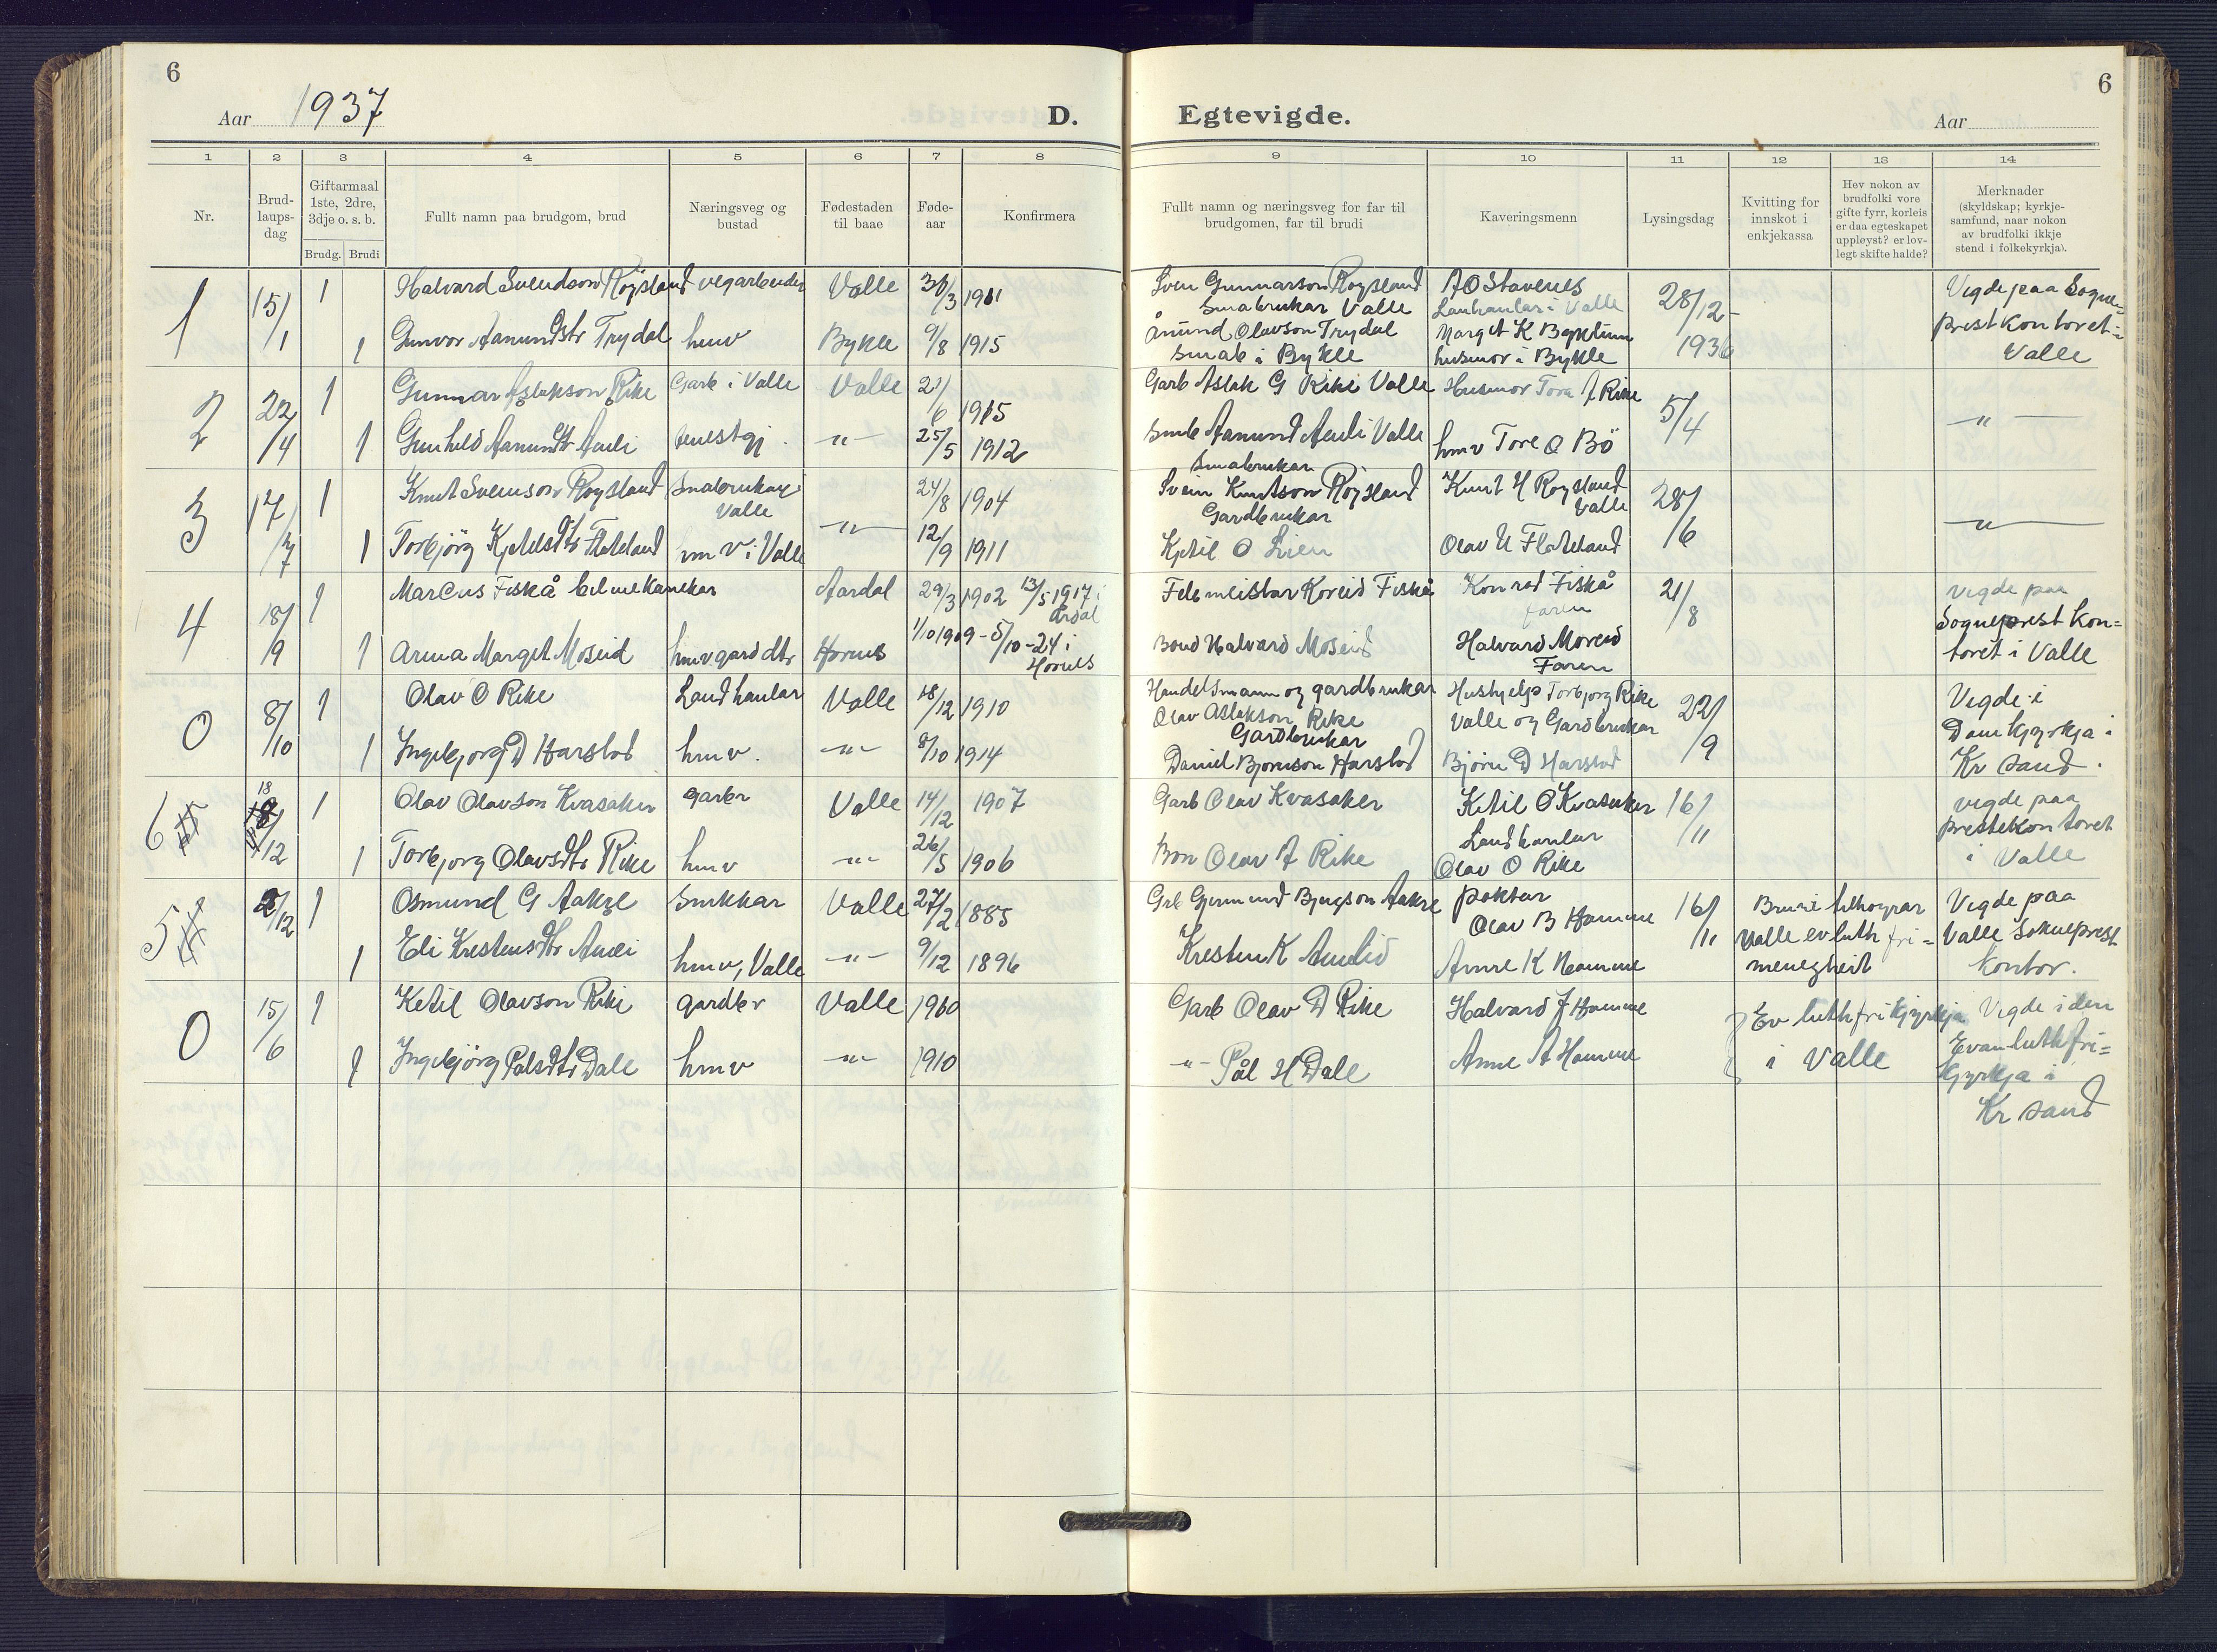 6
Aar 1937
D.
1 2 3 4 5 6 7 8
Nr.
Brud-
laups-
dag
Giftarmaal
1ste, 2dre,
3dje o. s. b.
Brudg. Brudi
Fullt namn paa brudgom, brud
Næringsveg og
bustad
Fødestaden
til baae
Føde-
aar
Konfirmera
1 15/1 1 Halvard Svendson Røysland vegarbeider Valle 3/3 1911
1 Gunvor Aamundsdtr Trydal hmv Bykle 9/8 1915
2 22/4 1 Gunnar Aslakson Rike Garb i Valle Valle 21/6 1915
1 Gunhild Aamundsdtr Auli tenestgj. -"- 25/5 1912
3 17/7 1 Knut Sveinson Røysland Smabrukar 24/8 1904
Valle -"-
1 Torbjörg Kjetilsdtr Flateland hmv i Valle 12/9 1911
4 18/9 1 Marcus Fiskå bilmekanekar Aardal 29/3 1902 13/5 1917 i
Årdal
1 Anna Marget Moseid hmv gard dtr Hornes 1/10 1909 - 5/10 -24 i
Hornes
0 8/10 1 Olav O Rike Landhanlar Valle 18/12 1910
1 Ingebjorg D Harstad hmv. -"- 8/10 1914
6 18/12 1 Olav Olavson Kvasaker garbr Valle 14/12 1907
1 Torbjorg Olavsdtr Rike hmv -"- 26/5 1906
5 2/12 1 Osmund G Aakre smbkkar Valle 27/2 1885
1 Eli Krestensdtr Auli hmv, Valle -"- 9/12 1896
0 15/6 1 Ketil Olavson Rike gardbr Valle 1900
1 Ingebjörg Palsdtr Dale hmv -"- 1910
6
Egtevigde.
Aar
9 10 11 12 13 14
Fullt namn og næringsveg for far til
brudgomen, far til brudi
Kaveringsmenn
Lysingsdag
Kvitting for
innskot i
enkjekassa
Hev nokon av
brudfolki vore
gifte fyrr, korleis
er daa egteskapet
uppløyst? er lov-
legt skifte halde?
Merknader
(skyldskap; kyrkje-
samfund, naar nokon
av brudfolki ikkje
stend i folkekyrkja).
Sven Gunnarson Roysland A O Stavenes 28/12- Vigde paa Sogne-
Smabrukar Valle Lanhanlar i Valle 1936 prestkontoret i
Ånund Olavson Trydal Marget K Bykle
Smab i Bykle husmor i Bykle Valle
Garb Aslak G Rike Valle Husmor Tora A Rike 5/4 -"-
Smb Aamund Auli Valle hmv Tore O Bö
Smabrukar
Svein Knutson Röysland Knut H Roysland 28/6 -"-
Gardbrukar Valle
Kjetil O Lien Olav U Flateland
Fele meistar Koreid Fiskå Konrad Fiskå 21/8 vigde paa
faren Sogneprest kon=
Bond Halvard Moseid Halvard Moseid toret i Valle
Faren
Handelsmann og gardbrukar Hushjelp Torbjorg Rike 22/9 Vigde i
Olav Aslakson Rike Valle og Gardbrukar Domkyrkja i
Gardbrukar
Daniel Bjornson Harstad Bjorn D Harstad Kr sand.
Garb Olav Kvasaker Ketil O Kvasaker 16/11 vigde paa
Landhanlar prestekontoret
Bon Olav A Rike Olav O Rike i Valle
Grb Germund Bjugson Aakre Doktar 16/11 Brurei tilhoyrar Vigde paa
Olav B Homme Valle ev luth fri- Valle Sokneprest
Kresten K Aulid Anne K Homme menegheit kontor.
Garb Olav D Rike Halvard J Homme Ev luth frikyrkja Vigde i den
-"- Pål H Dale Anne A Homme i Valle Evan luth fri=
kyrkja i
Kr sand